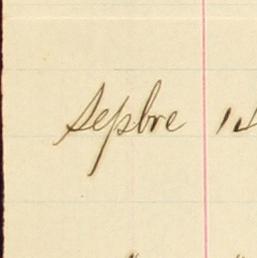 Sepbre 1